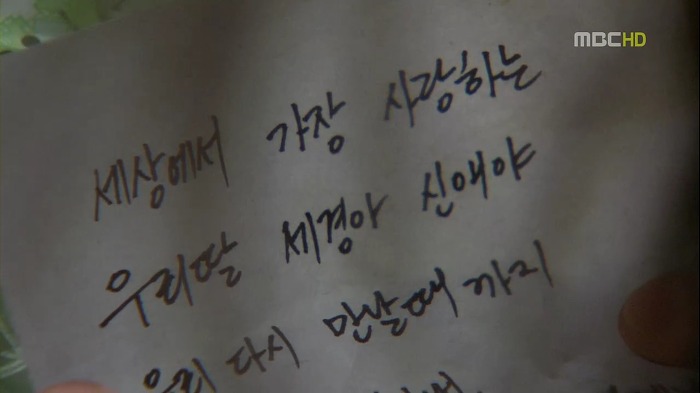 MBC HD
세상에서 가장 사랑하는
우리딸 세경아 신애야
우리 다시 만날때 까지